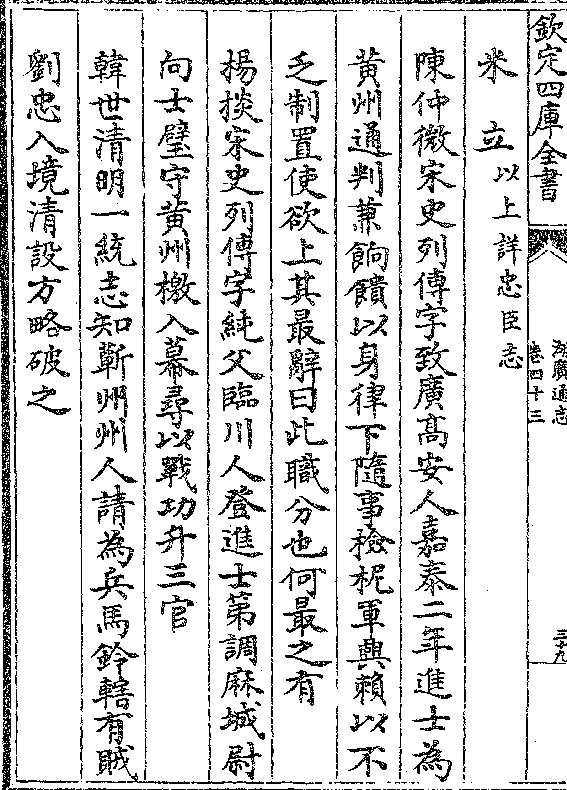 欽定四庫全書
湖廣通志
卷四十三
三十九
米立以上詳忠臣志
陳仲微宋史列傳字致廣髙安人嘉泰二年進士為
黄州通判兼餉饋以身律下隨事檢柅軍興賴以不
乏制置使欲上其最辭曰此職分也何最之有
楊掞宋史列傳字純父臨川人登進士第調麻城尉
向士璧守黄州檄入幕尋以戰功升三官
韓世清明一統志知蘄州州人請為兵馬鈐轄有賊
劉忠入境清設方略破之